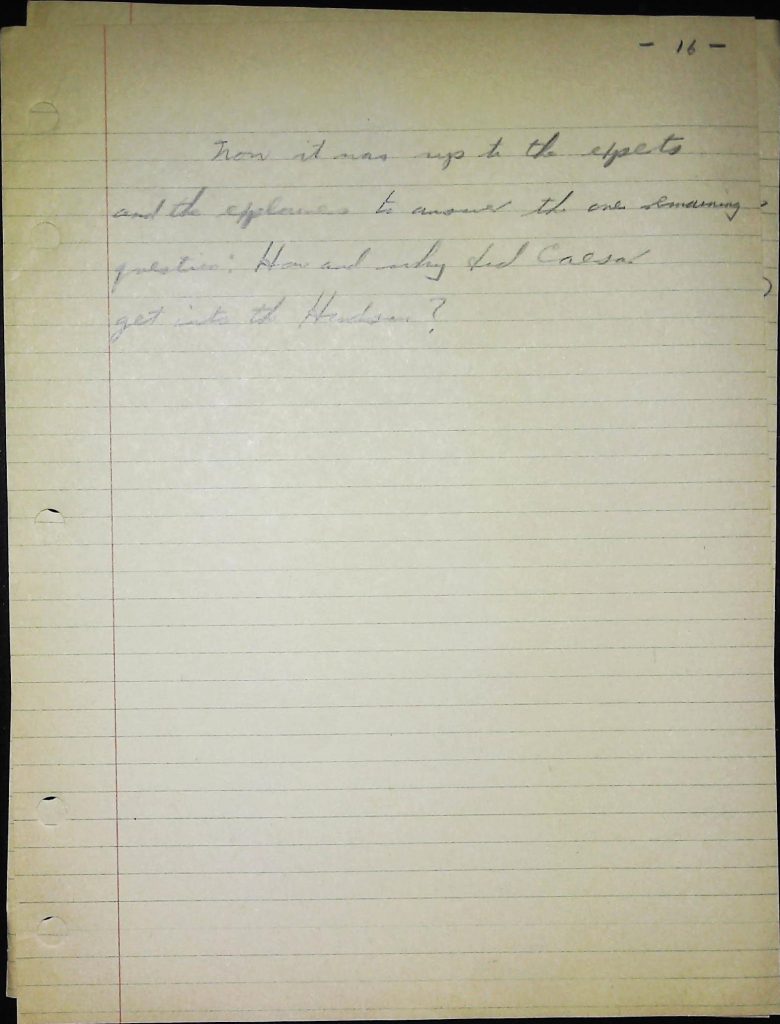 - 16 -
Now it was up to the experts
and the explorers to answer the one remaining
question: How and why did Caesar
get into the Hudson?